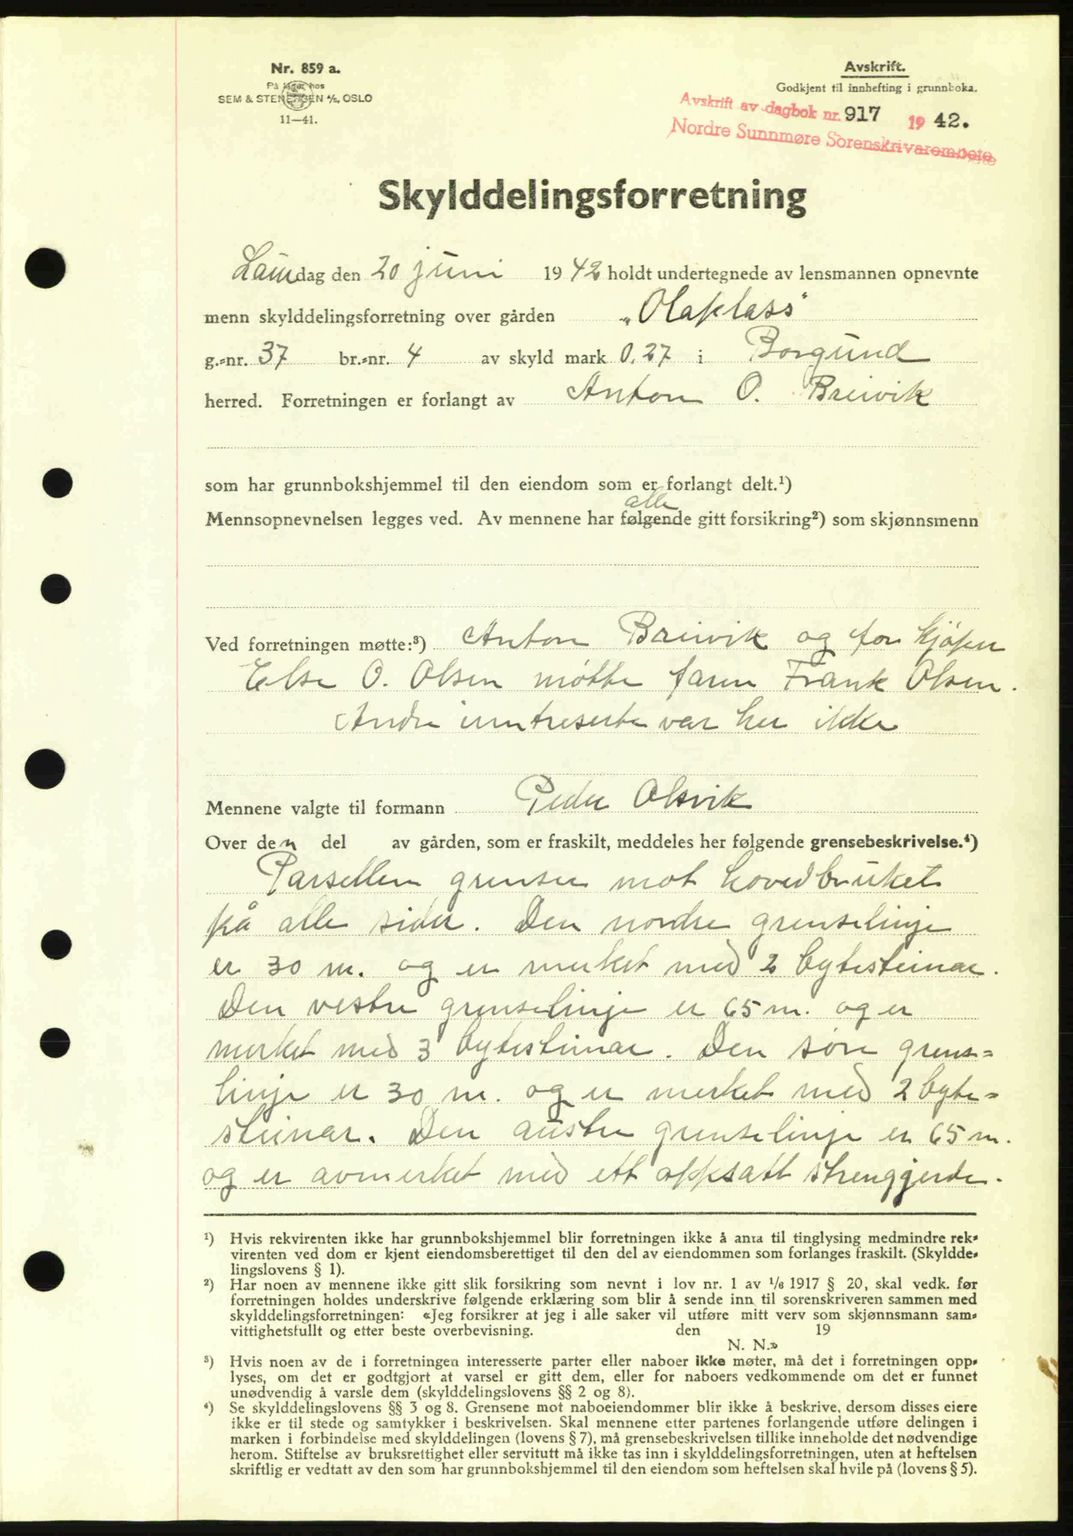 Nr. 859 a.
På lager hos
SEM & STENERSEN A/S, OSLO
11—41.
Avskrift.
Godkjent til innhefting i grunnboka.
Avskrift av dagbok nr. 917 1942.
Nordre Sunnmøre Sorenskriverembete
Skylddelingsforretning
Laurdag den 20 juni 1942 holdt undertegnede av lensmannen opnevnte
menn skylddelingsforretning over gården „Olaplass"
g.-nr. 37 br.-nr. 4 av skyld mark 0,27 i Borgund
herred. Forretningen er forlangt av Anton O. Breivik
som har grunnbokshjemmel til den eiendom som er forlangt delt.¹)
alle
Mennsopnevnelsen legges ved. Av mennene har følgende gitt forsikring²) som skjønnsmenn
Ved forretningen møtte:³) Anton Breivik og for kjøper
Else O. Olsen møtte faren Frank Olsen.
Andre inntreserte var her ikke
Mennene valgte til formann Peder Alsvik
Over den del av gården, som er fraskilt, meddeles her følgende grensebeskrivelse.⁴)
Parsellen grenser mot hovedbruket
på alle sider. Den nordre grenselinje
er 30 m. og er merket med 2 bytesteinar.
Den vestre grenselinje er 65 m. og er
merket med 3 bytesteinar. Den søre grens=
linje er 30 m. og er merket med 2 byte=
steinar. Den austre grenselinje er 65 m.
og er avmerket med ett oppsatt strenggjerde.
¹) Hvis rekvirenten ikke har grunnbokshjemmel blir forretningen ikke å anta til tinglysing medmindre rek-
virenten ved dom er kjent eiendomsberettiget til den del av eiendommen som forlanges fraskilt. (Skyldde-
lingslovens § 1).
²) Har noen av mennene ikke gitt slik forsikring som nevnt i lov nr. 1 av 1/6 1917 § 20, skal vedk. før
forretningen holdes underskrive følgende erklæring som blir å sende inn til sorenskriveren sammen med
skylddelingsforretningen: «Jeg forsikrer at jeg i alle saker vil utføre mitt verv som skjønnsmann sam-
vittighetsfullt og etter beste overbevisning. den 19
N. N.»
³) Hvis noen av de i forretningen interesserte parter eller naboer ikke møter, må det i forretningen opp-
lyses, om det er godtgjort at varsel er gitt dem, eller for naboers vedkommende om det er funnet
unødvendig å varsle dem (skylddelingslovens §§ 2 og 8).
⁴) Se skylddelingslovens §§ 3 og 8. Grensene mot naboeiendommer blir ikke å beskrive, dersom disses eiere
ikke er til stede og samtykker i beskrivelsen. Skal mennene etter partenes forlangende utføre delingen i
marken i forbindelse med skylddelingen (lovens § 7), må grensebeskrivelsen tillike inneholde det nødvendige
herom. Stiftelse av bruksrettighet eller servitutt må ikke tas inn i skylddelingsforretningen, uten at heftelsen
skriftlig er vedtatt av den som har grunnbokshjemmel til den eiendom som heftelsen skal hvile på (lovens § 5).